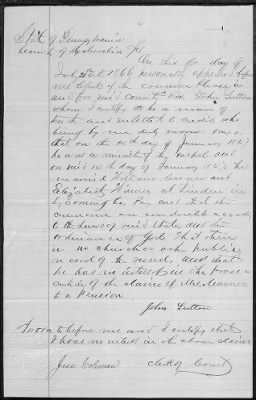 State of Pennsylvania
County of Columbia SS
On this day of
July AD 1866 personally appeared before
me Clerk of the Common Pleas in
and for said County John Sutton
whom I certify to be a man of
truth and entitled to credit who
being by me duly sworn says
that on the 14th day of January 1867
he was a minister of the gospel and
on said 14th day of January he
married and
Elizabeth at Linden in
Lycoming Co. Pa, and that the
ceremony was conducted according
to the Laws of said State, and the
ordinances of God. That there
is no church or public
record of the same, and that
he has no interest in the prosecution
of the claim of Mrs
to a Pension
John Sutton
Sworn to before me and I certify that
I have no interest in the above claim
Jesse Coleman Clerk of Court